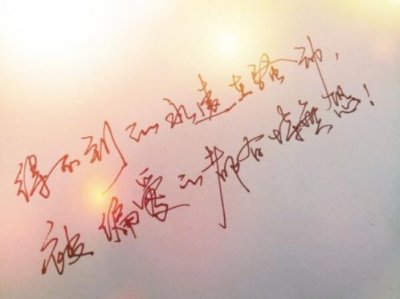 得不到的永远在骚动,
被偏爱的都有恃无恐!